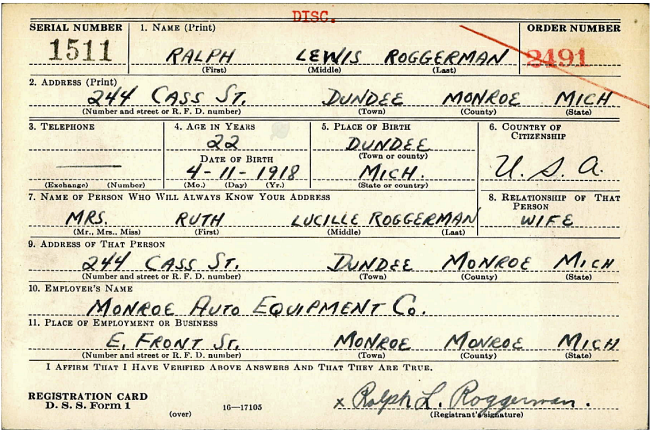 DISC.
SERIAL NUMBER 1. NAME (Print) ORDER NUMBER
1511 RALPH LEWIS ROGGERMAN 2491
(First) (Middle) (Last)
2. ADDRESS (Print)
244 CASS ST. DUNDEE MONROE MICH
(Number and street or R. F. D. number) (Town) (County) (State)
3. TELEPHONE 4. AGE IN YEARS 5. PLACE OF BIRTH 6. COUNTRY OF CITIZENSHIP
22 DUNDEE
(Town or county)
DATE OF BIRTH
4-11-1918 MICH. U. S. A.
(Exchange) (Number) (Mo.) (Day) (Yr.) (State or country)
7. NAME OF PERSON WHO WILL ALWAYS KNOW YOUR ADDRESS 8. RELATIONSHIP OF THAT PERSON
MRS. RUTH LUCILLE ROGGERMAN WIFE
(Mr., Mrs., Miss) (First) (Middle) (Last)
9. ADDRESS OF THAT PERSON
244 CASS ST. DUNDEE MONROE MICH
(Number and street or R. F. D. number) (Town) (County) (State)
10. EMPLOYER'S NAME
MONROE AUTO EQUIPMENT CO.
11. PLACE OF EMPLOYMENT OR BUSINESS
E. FRONT ST. MONROE MONROE MICH
(Number and street or R. F. D. number) (Town) (County) (State)
I AFFIRM THAT I HAVE VERIFIED ABOVE ANSWERS AND THAT THEY ARE TRUE.
REGISTRATION CARD
D. S. S. Form 1 (over) 16—17105 x Ralph L. Roggerman.
(Registrant's signature)